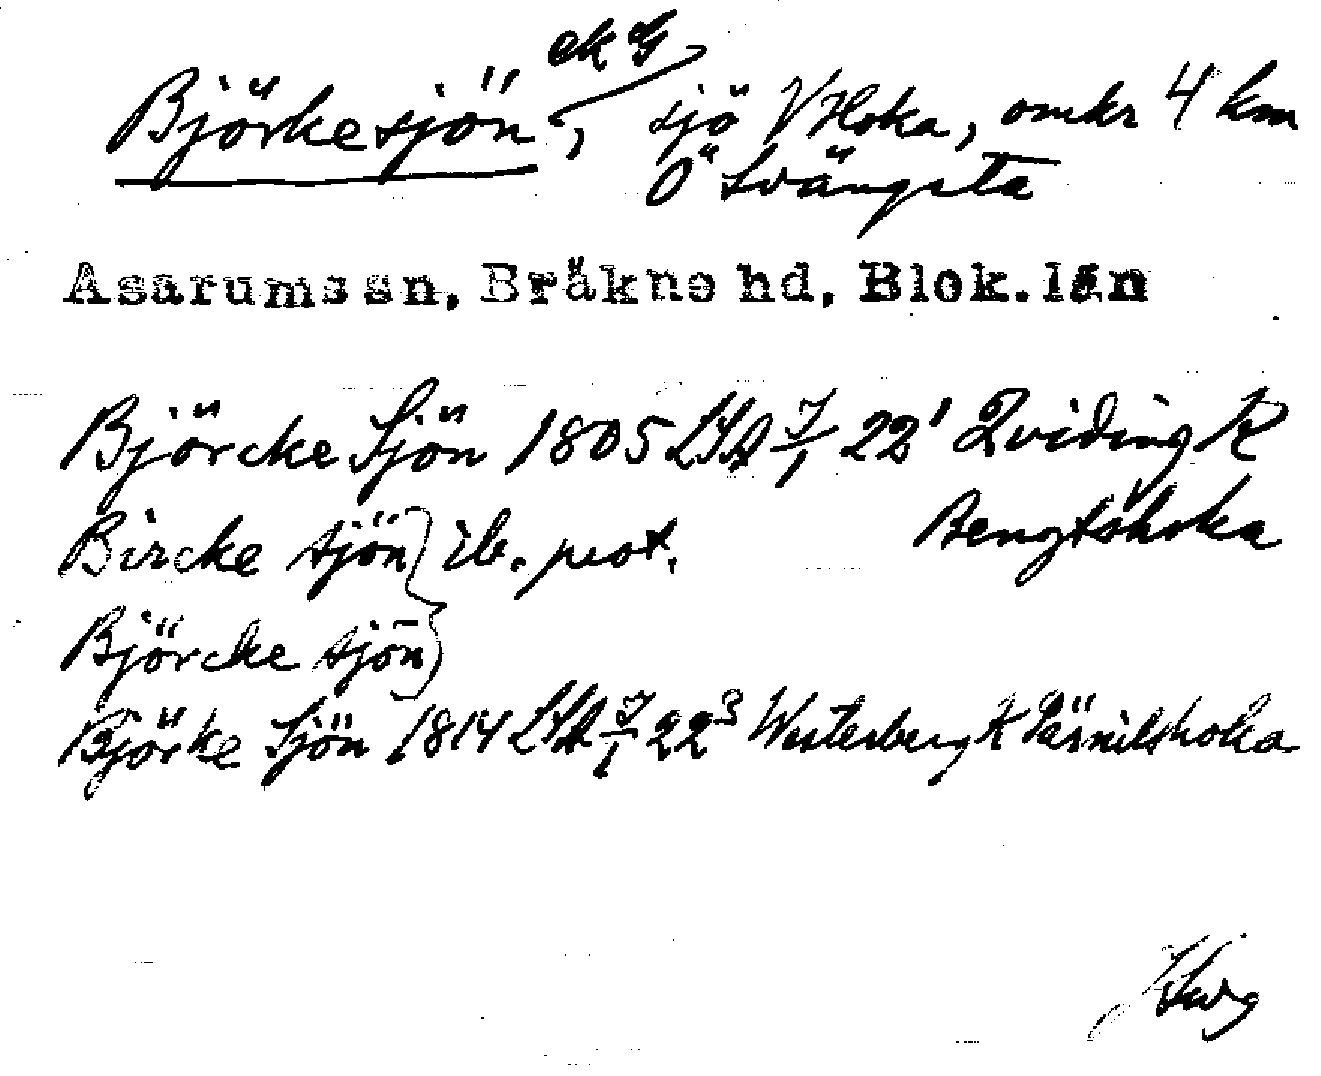 ek G
Björkesjön, sjö V Hoka, omkr 4 km
Ö Svängsta
Asarums sn, Bräkne hd, Blek. län
Björcke Sjön 1805 LSA J/1 22¹ Qviding K
Bircke sjön } ib. prot. Bengtshoka
Björcke sjön
Björke Sjön 1814 LSA J/1 22³ Westerberg K Pärnilshoka